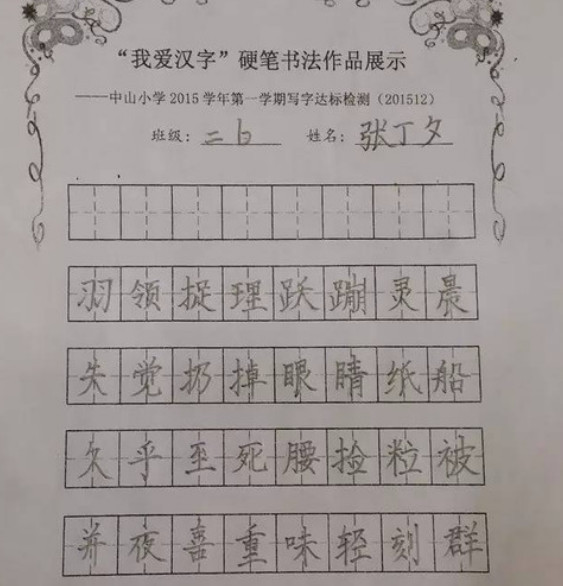 “我爱汉字”硬笔书法作品展示
——中山小学2015学年第一学期写字达标检测（201512）
班级：二6 姓名：张丁夕
羽领捉理跃蹦灵晨
失觉扔掉眼睛纸船
久乎至死腰捡粒被
并夜喜重味轻刻群